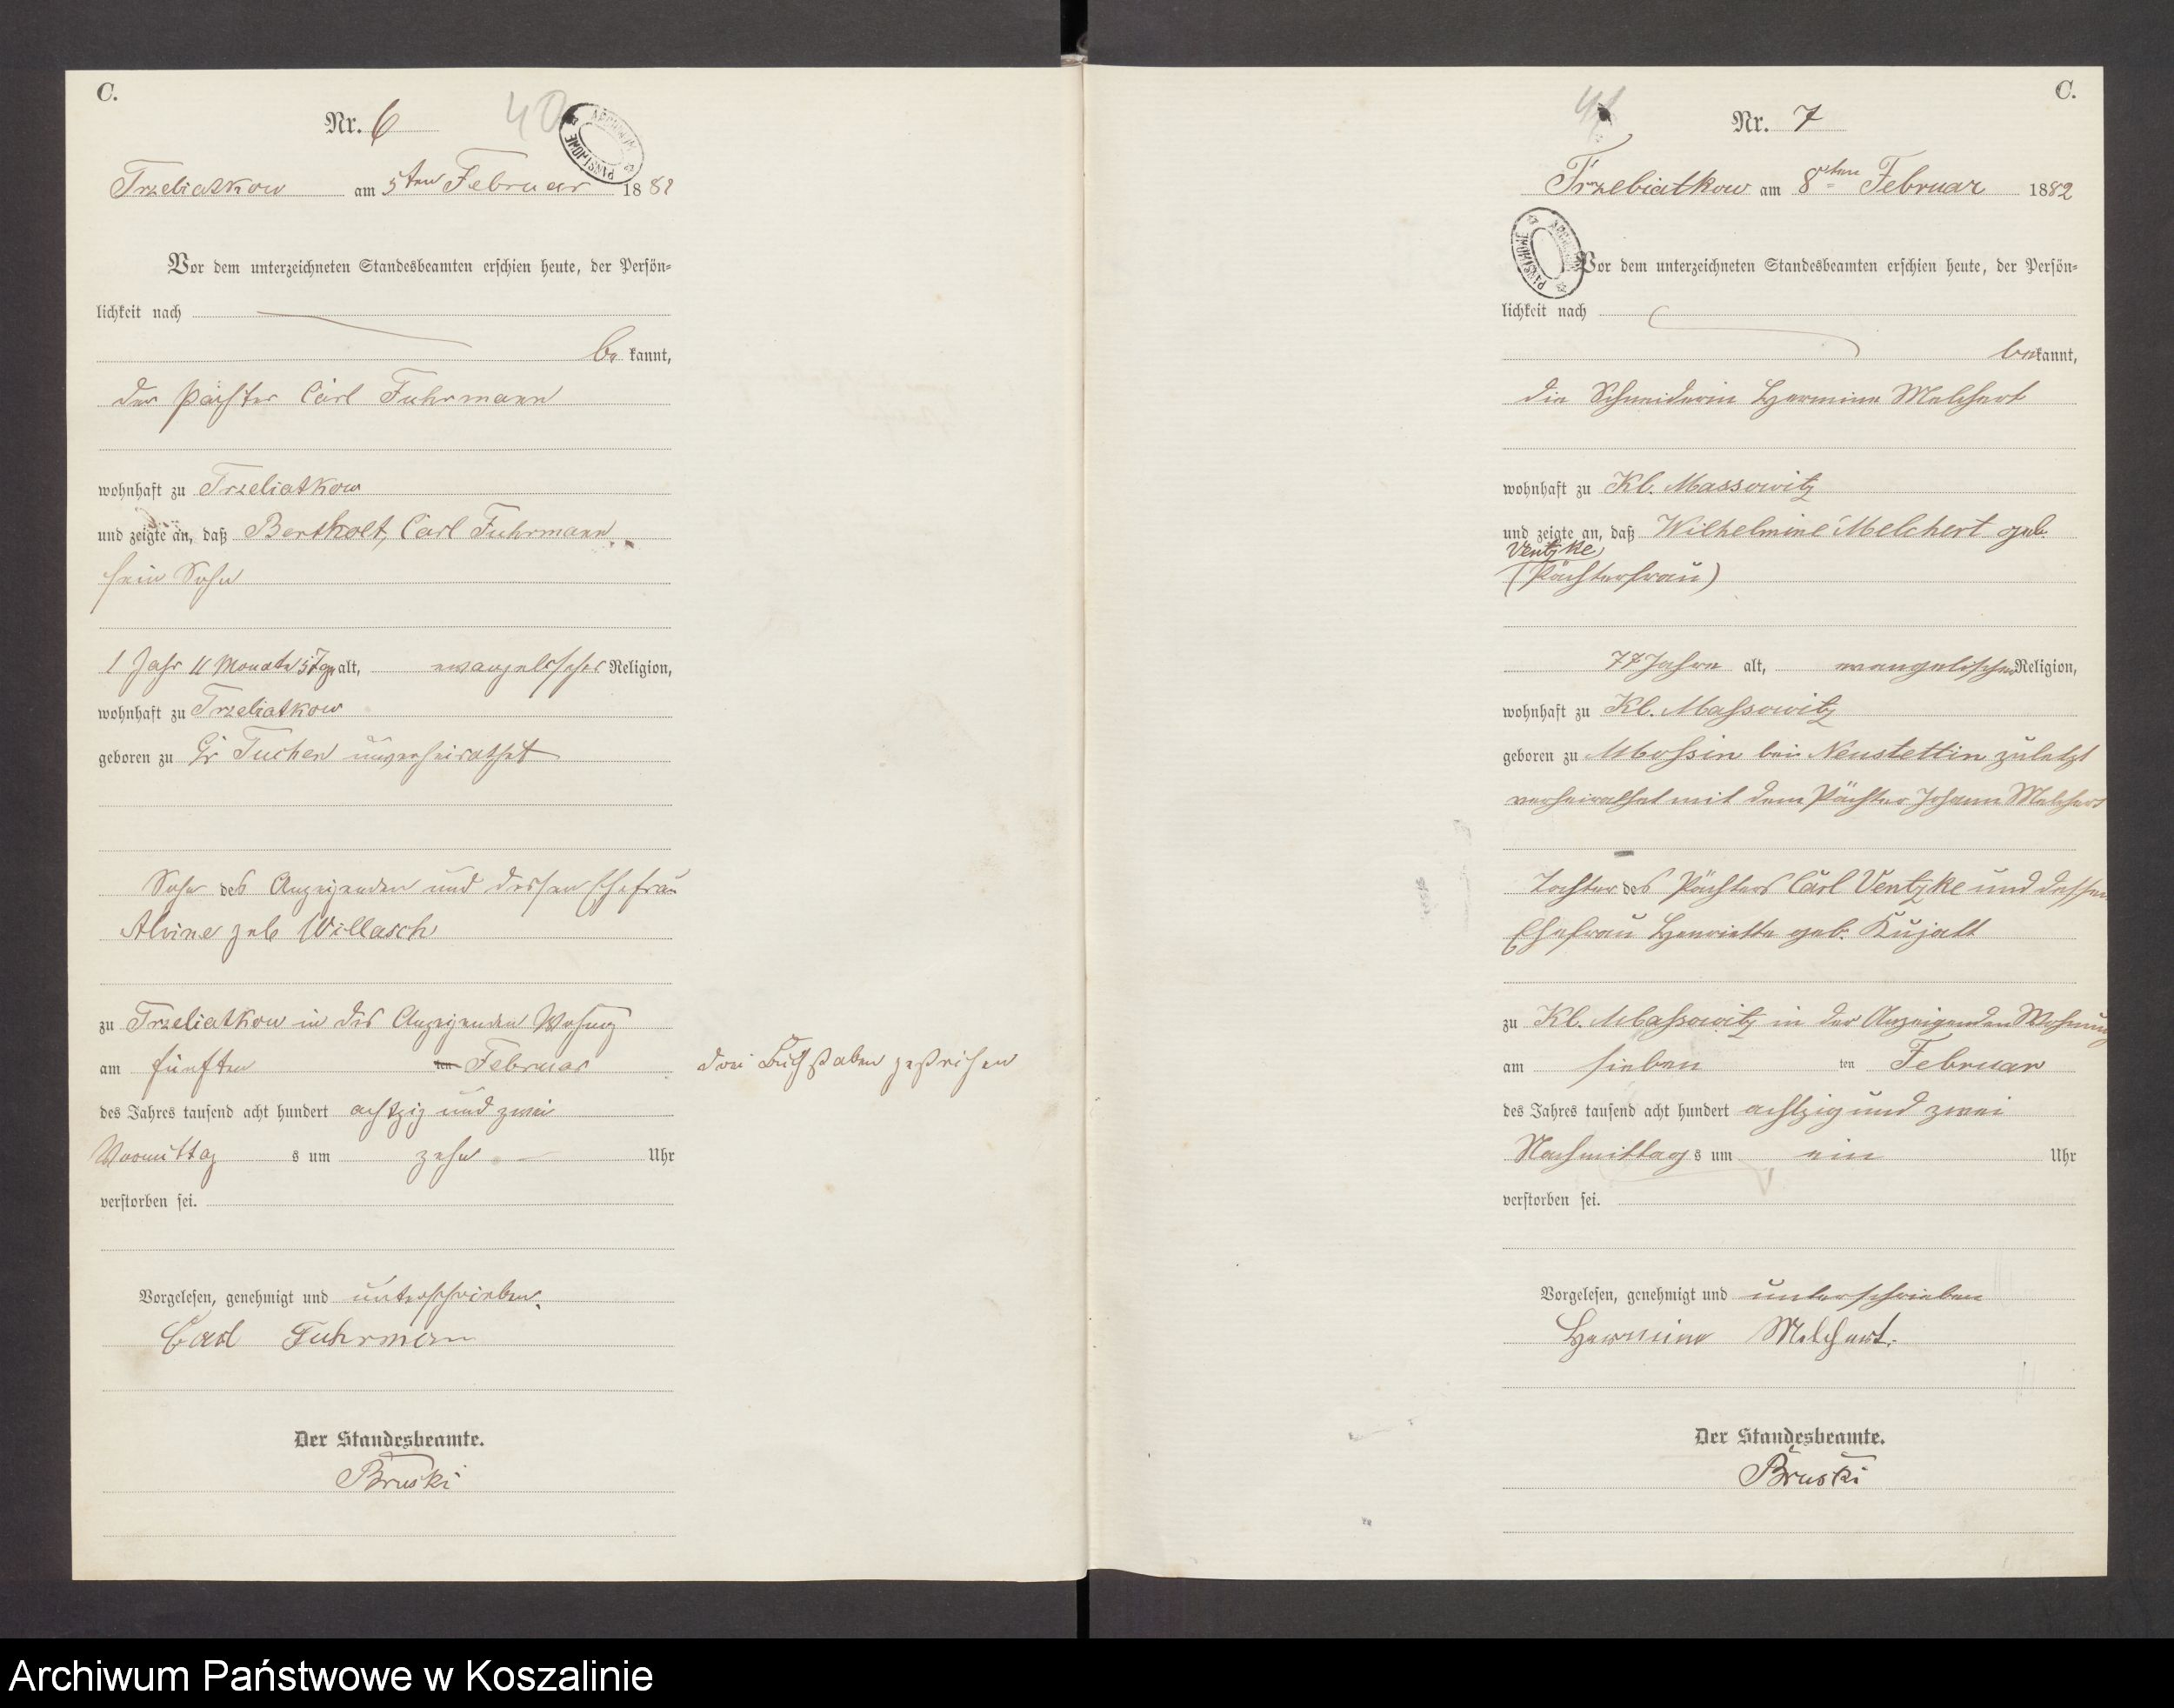 C.
Nr. 6
40
ARCHIWUM PAŃSTWOWE
Trzebiatkow am 5ten Februar 1882
Vor dem unterzeichneten Standesbeamten erschien heute, der Persön=
lichkeit nach
be kannt,
der Pächter Carl Fuhrmann
wohnhaft zu Trzebiatkow
und zeigte an, daß Berthold, Carl Fuhrmann
sein Sohn
1 Jahr 11 Monate 5 Tge alt, evangelischer Religion,
wohnhaft zu Trzebiatkow
geboren zu Gr Tuchen unverheirathet
Sohn des Anzeigenden und dessen Ehefrau
Alvine geb Willasch
zu Trzebiatkow in des Anzeigenden Wohnung
am fünften ten Februar
drei Buchstaben gestrichen
des Jahres tausend acht hundert achtzig und zwei
Vormittag s um zehn Uhr
verstorben sei.
Vorgelesen, genehmigt und unterschrieben.
Carl Fuhrman
Der Standesbeamte.
Bruski
C.
41
Nr. 7
Trzebiatkow am 8ten Februar 1882
ARCHIWUM PAŃSTWOWE
Vor dem unterzeichneten Standesbeamten erschien heute, der Persön=
lichkeit nach
bekannt,
die Schneiderin Hermine Melchert
wohnhaft zu Kl. Massowitz
und zeigte an, daß Wilhelmine Melchert geb.
Ventzke
(Pächterfrau)
77 Jahre alt, evangelischer Religion,
wohnhaft zu Kl. Massowitz
geboren zu Mossin bei Neustettin zuletzt
verheirathet mit dem Pächter Johann Melchert
Tochter des Pächters Carl Ventzke und dessen
Ehefrau Henriette geb. Kujatt
zu Kl. Massowitz in der Anzeigenden Wohnung
am sieben ten Februar
des Jahres tausend acht hundert achtzig und zwei
Nachmittag s um ein Uhr
verstorben sei.
Vorgelesen, genehmigt und unterschrieben
Hermine Melchert.
Der Standesbeamte.
Bruski
Archiwum Państwowe w Koszalinie